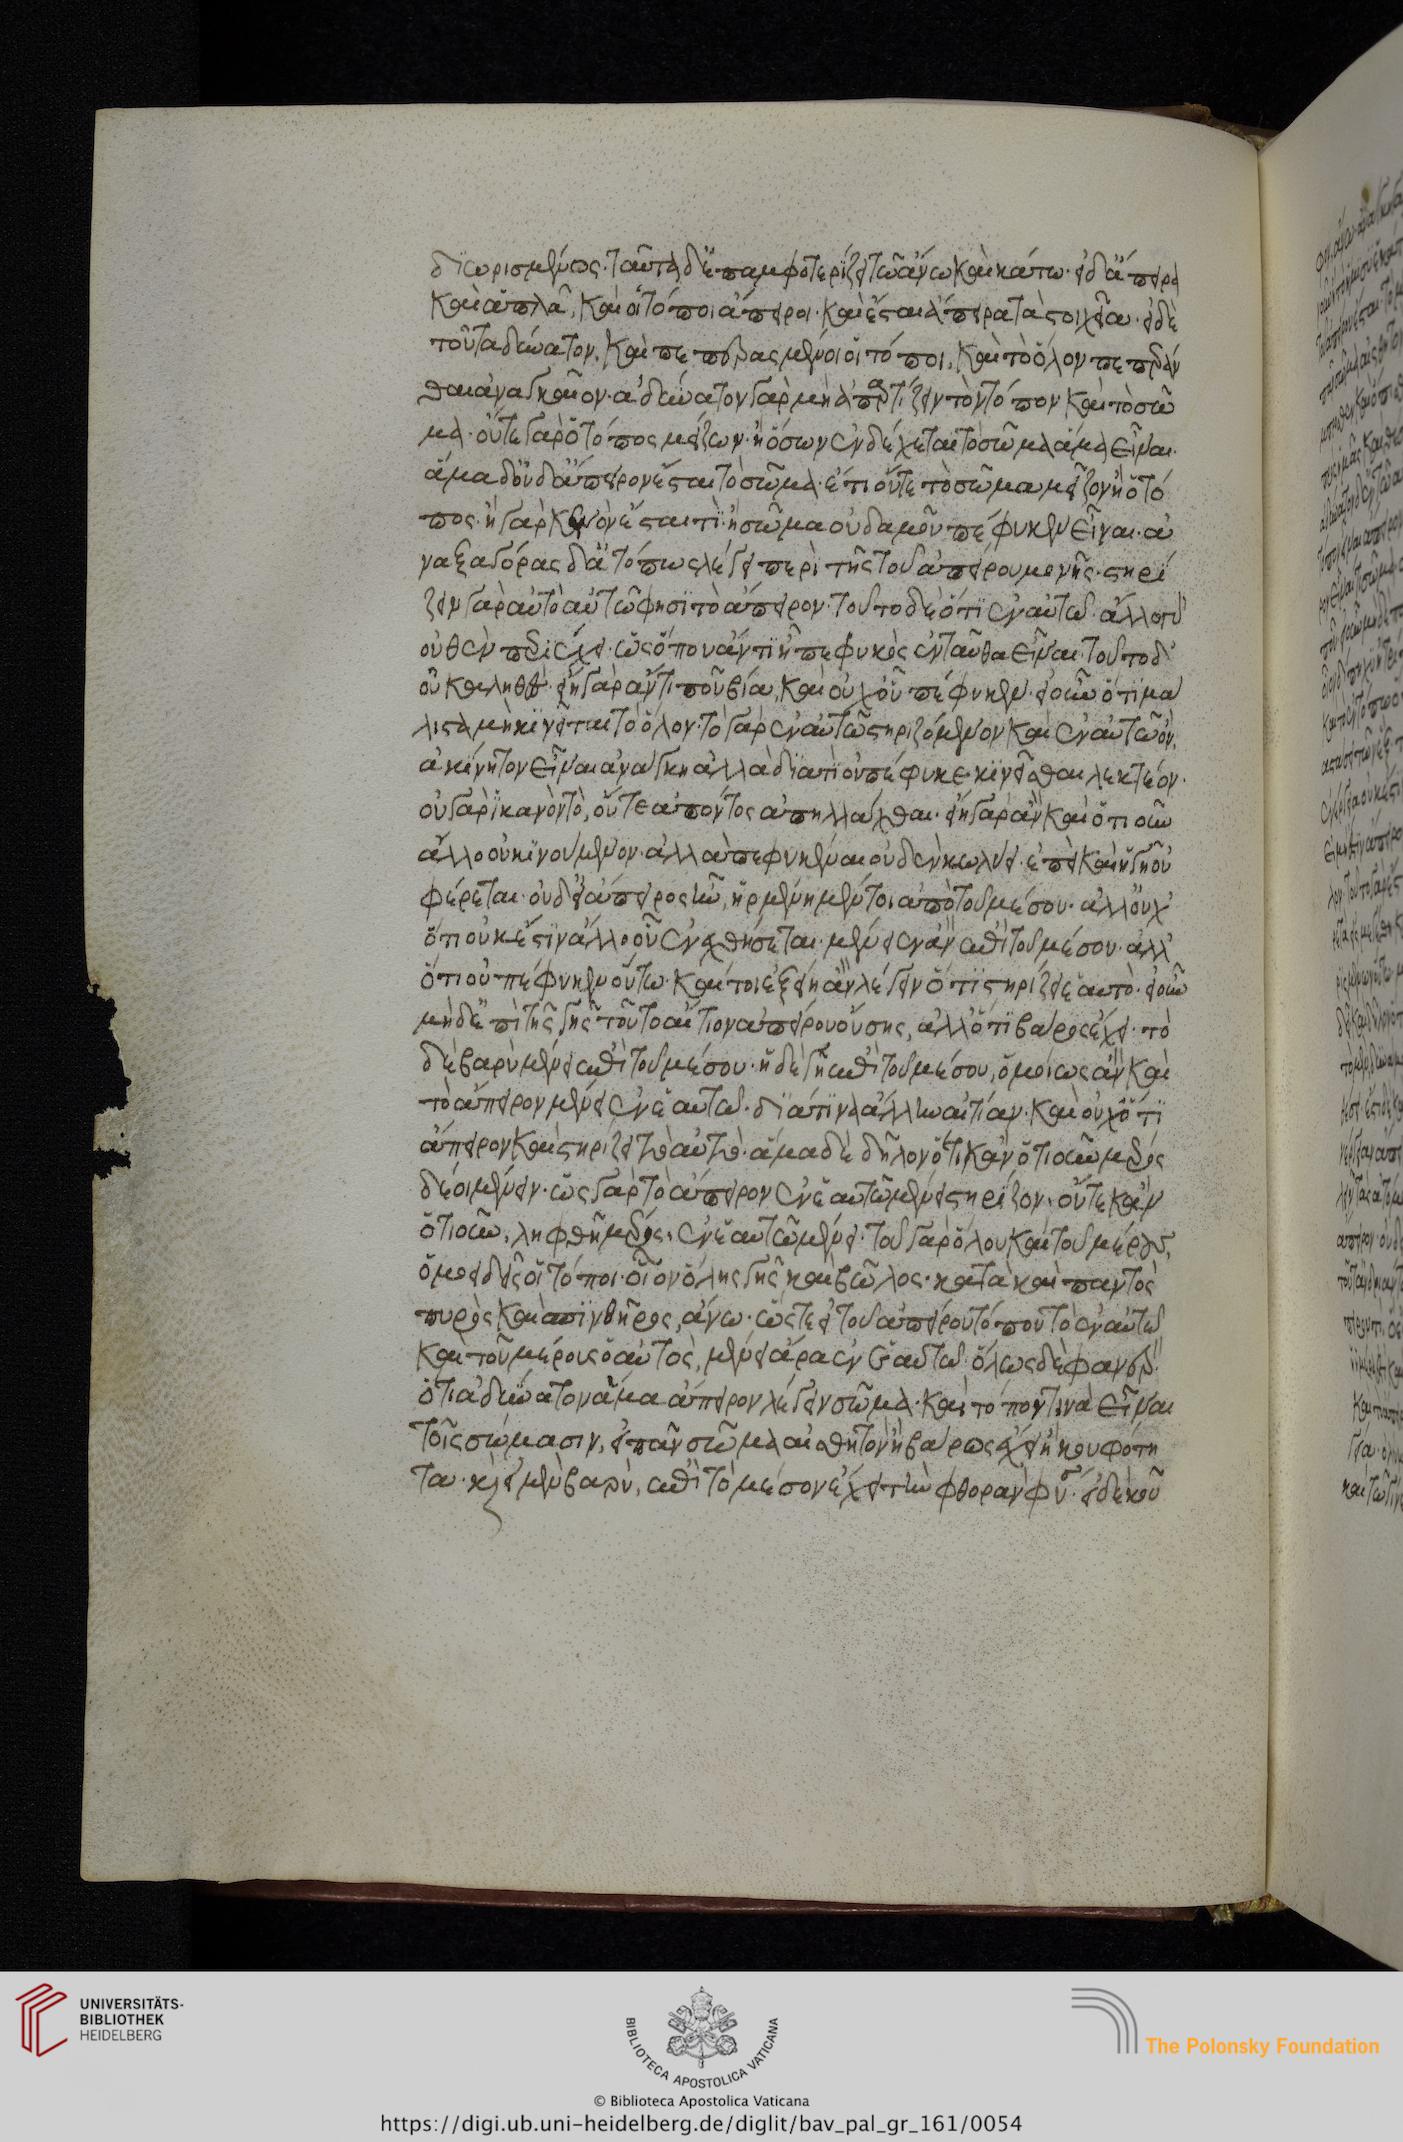 διωρισμένως· ταῦτα δ' ἐπαμφοτερίζει τῶ ἄνω καὶ κάτω· εἰ δ' ἄπειρα
καὶ ἁπλᾶ, καὶ οἱ τόποι ἄπειροι· καὶ ἔσται ἄπειρα τὰ στοιχεῖα· εἰ δὲ
τοῦτ' ἀδύνατον, καὶ πεπερασμένοι οἱ τόποι, καὶ τὸ ὅλον πεπεράν
θαι ἀναγκαῖον· ἀδύνατον γὰρ μὴ ἀπαρτίζειν τὸν τόπον καὶ τὸ σῶ
μα· οὔτε γὰρ ὁ τόπος μείζων· ἢ ὅσων ἐνδέχεται τὸ σῶμα ἅμα εἶναι·
ἅμα δ' οὐδ' ἄπειρον ἔσται τὸ σῶμα· ἔτι οὔτε τὸ σῶμα μεῖζον ἢ ὁ τό
πος· ἢ γὰρ κενὸν ἔσται τὶ· ἢ σῶμα οὐδαμοῦ πέφυκεν εἶναι· ἀ
ναξαγόρας δ' ἀτόπως λέγει περὶ τῆς τοῦ ἀπείρου μονῆς· στηρί
ζειν γὰρ αὐτὸ αὐτῶ φησὶ τὸ ἄπειρον· τοῦτο δὲ ὅτι ἐν αὐτῶ· ἄλλο γὰρ
οὐθὲν περιέχει· ὡς ὅπου ἄν τι ἦ πεφυκὸς ἐνταῦθα εἶναι· τοῦτο δ'
οὐκ ἀληθές· εἴη γὰρ ἄν τι ποῦ βία, καὶ οὐχ οὗ πέφυκεν· εἰ οὖν ὅτι μά
λιστα μὴ κινεῖται τὸ ὅλον· τὸ γὰρ ἐν αὐτῶ στηριζόμενον καὶ ἐν αὐτῶ ὂν,
ἀκίνητον εἶναι ἀνάγκη ἀλλὰ διατὶ οὐ πέφυκε κινεῖσθαι λεκτέον·
οὐ γὰρ ἱκανὸν τὸ, οὕτε εἰπόντος ἀπηλλάχθαι· εἴη γὰρ ἂν καὶ ὁτιοῦν
ἄλλο οὐ κινούμενον· ἀλλὰ πεφυκέναι οὐδὲν κωλύει· ἐπεὶ καὶ ἡ γῆ οὐ
φέρεται· οὐδ' εἰ ἄπειρος ἦν, εἰργμένη μέντοι ἀπὸ τοῦ μέσου· ἀλλ' οὐχ'
ὅτι οὐκ ἔστιν ἄλλο οὗ ἐνεχθήσεται· μένει ἐν ἂν ἐπὶ τοῦ μέσου· ἀλλ'
ὅτι οὐ πέφυκεν οὕτω· καίτοι ἐξείη ἂν λέγειν ὅτι στηρίζει ἑαυτό· εἰ οὖν
μὴδ' ἐπὶ τῆς γῆς τοῦτο αἴτιον ἀπείρου οὔσης, ἀλλ' ὅτι βάρος ἔχει· τὸ
δὲ βαρὺ μένει ἐπὶ τοῦ μέσου· ἡ δὲ γῆ ἐπὶ τοῦ μέσου, ὁμοίως ἂν καὶ
τὸ ἄπειρον μένει ἐν ἑαυτῶ· διά τινα ἄλλην αἰτίαν· καὶ οὐχ ὅτι
ἄπειρον καὶ στηρίζει αὐτὸ αὐτό· ἅμα δὲ δῆλον ὅτι κἂν ὁτιοῦν μέρος
δέοι μένειν· ὡς γὰρ τὸ ἄπειρον ἐν ἑαυτῶ μένει στηρίζον, οὕτε κἂν
ὁτιοῦν, ληφθῆ μέρος, ἐν ἑαυτῶ μένει· τοῦ γὰρ ὅλου καὶ τοῦ μέρους,
ὁμοειδεῖς οἱ τόποι· οἷον ὅλης γῆς καὶ βῶλος· κάτω καὶ παντὸς
πυρὸς καὶ σπινθῆρος, ἄνω· ὥστε εἰ τοῦ ἀπείρου τόπου τὸ ἐν αὑτῶ
καὶ τοῦ μέρους ὁ αὐτὸς, μένει ἄρα ἐν ἑαυτῶ· ὅλως δὲ φανερὸν
ὅτι ἀδύνατον ἅμα ἄπειρον λέγειν σῶμα· καὶ τόπον τινὰ εἶναι
τοῖς σώμασιν, εἰ πᾶν σῶμα αἰσθητὸν ἢ βάρος ἔχει ἢ κουφότη
τα· καὶ εἰ μὲν βαρὺ, ἐπὶ τὸ μέσον ἔχει τὴν φθορὰν φύσει· εἰ δὲ κοῦ
UNIVERSITÄTS-
BIBLIOTHEK
HEIDELBERG
BIBLIOTECA APOSTOLICA VATICANA
The Polonsky Foundation
© Biblioteca Apostolica Vaticana
https://digi.ub.uni-heidelberg.de/diglit/bav_pal_gr_161/0054